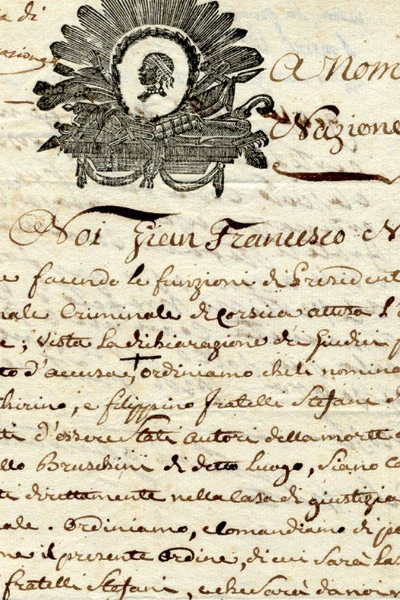 a di
A nom
Nazione
Noi Gian Francesco N
e facendo le funzioni di President
nale Criminale di Corsica attesa l'a
e; vista la dichiarazione dei Giudici p
to d'accusa, ordiniamo che li nomina
chirino, e filippino fratelli Stefani d
ti d'essere stati autori della morte
llo Bruschini di detto Luogo, siano co
ti direttamente nella casa di giustizia
nale. Ordiniamo, e comandiamo di po
ne il presente ordine, di cui sarà las
fratelli Stefani, e che sarà da noi n